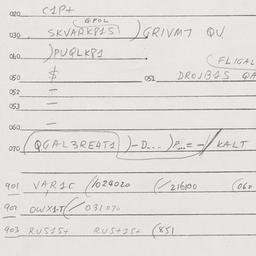 020 C1P+
QPOL
030 SKVARK815) GRIVM7 QV
040 )PUQLK81
FLIGAL
050 $ 051 DROJB45 QA
052 —
053 —
060 —
070 (QGAL3RE4T1) -D... )P...=-/ KALT
901 VAR1C (/024020 (/216100 (060
902 OWX1T(/031070
903 RUS15+ RUS+15+ (851